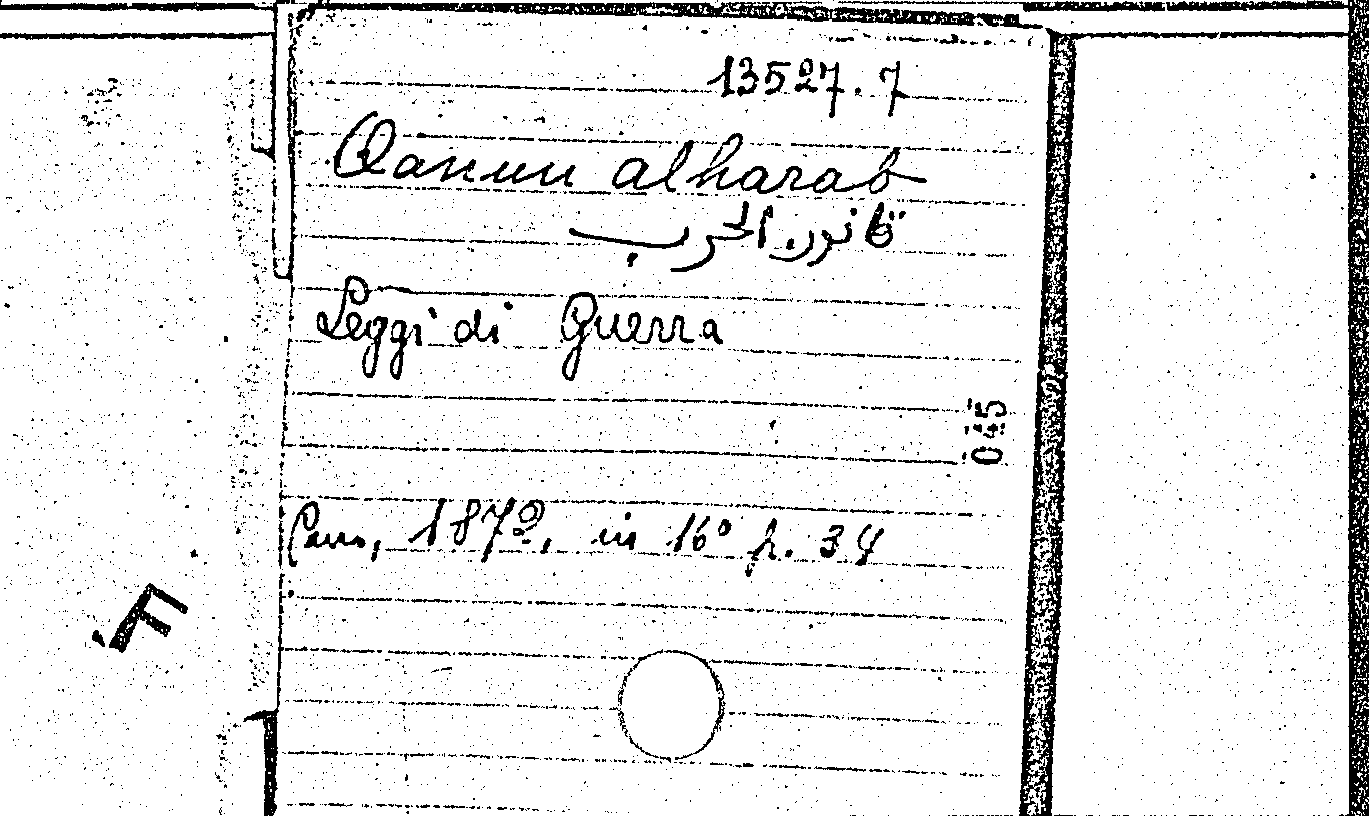 13527.7
Qanun alharab
قانون الحرب
Leggi di Guerra
045
Cairo, 1872, in 16° p. 34
F